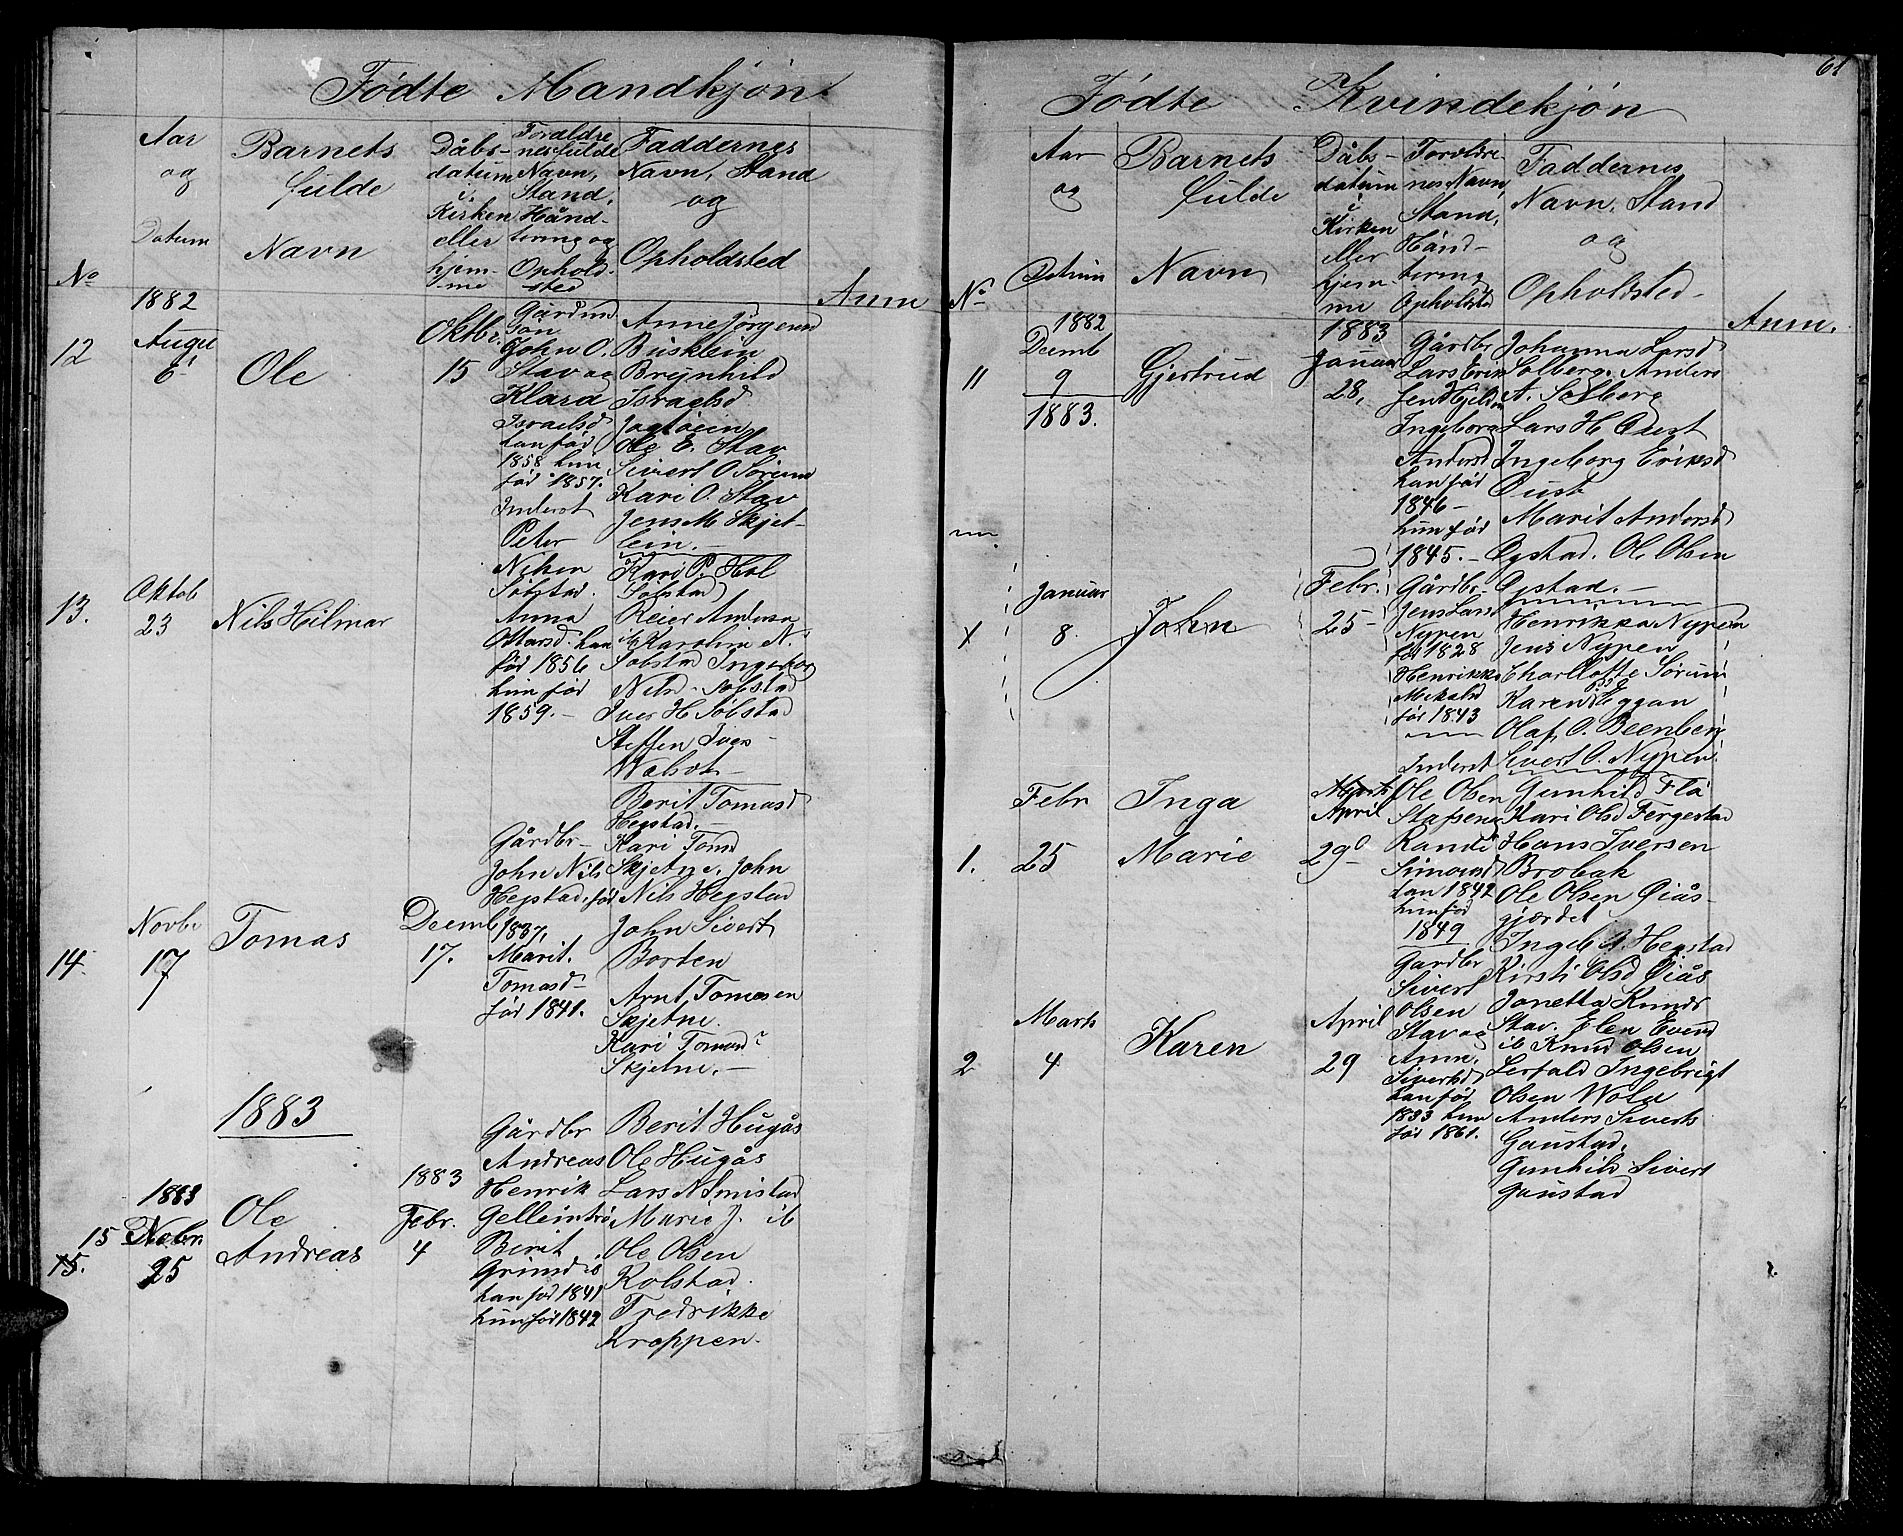 Fødte Mandkjøn
No
Aar
og
Datum
Barnets
fulde
Navn
Dåbs-
datum
i
Kirken
eller
hjem-
me
Foraldre
nes fulde
Navn,
Stand,
Hånd-
tering og
Ophold-
sted
Faddernes
Navn, Stand
og
Opholdsted
Anm
1882
12
August
6
Ole
Oktbr.
15
Gårdmd
Søn
John O.
Stav og
Klara
Israelsd
han fød
1858 hun
fød 1857.
Anne Jörgensd
Busklein
Brynhild
Israelsd
Ole E. Stav
Sivert O. Sörum
Kari O. Stav
Jens M. Skjet-
lein.
13.
Oktob
23
Nils Hilmar
Inderst
Peter
Nilsen
Søbstad.
Anna
Ottarsd. han
fød 1856
hun fød
1859.-
Kari P. Hol
Søbstad
Reier Andersa
ib Karolin N.
Søbstad Ingebor
Nilsd. Søbstad
Iver H. Søbstad
Steffen Ivers-
14.
Novbr
17
Tomas
Decemb
17.
Gårdbr-
John Nils
Hegstad, fød
1837,
Marit.
Tomasd-
fød 1841.
Berit Tomasd
Hegstad.-
Kari Tomsd
Skjetne, John
Nils Hegstad
John Sivert
Borten
Arnt, Tomasen
Skjetne.
Kari Tomasd
Skjetne.-
1883
1883
15 Febr.
15.
25
Ole
Andreas
1883
Febr.
4
Gårdbr
Andreas
Henrik
Gelleintrø
Berit
Grimsd ib
han fød 1841
hun fød 1842
Berit Hugås
Ole Hugås
Lars N. Imistad
Marie J. ib
Ole Olsen
Kolstad.
Fredrikke
Kroppen.
61
Fødte Kvindekjøn
No
Aar
og
Datum
Barnets
fulde
Navn
Dåbs-
datum
i
Kirken
eller
hjem-
me
Foraldre-
nes Navn,
Stand,
Hånd-
tering
Opholdsted
Faddernes
Navn, Stand
og
Opholdsted-
Anm.
1882
11
Decmb
9
1883.
Gjertrud
1883
Januar
28,
Gårdbr
Lars Erik
sen Hjeldn
Ingeborg
Andersd
han fød
1846-
hun fød
1845.-
Johanna Larsd
Solberg. Anders
A. Solberg
Lars H. Oust
Ingeborg Eriksd
Oust
Marit Andersd
Øystad. Ole Olsen
Øystad.-
x
Januar
8.
John
Febr.
25-
Gårdbr.
Jens Lars
Nypen
fød 1828
Henrikke
Mekalsd
fød 1843
Henrikka Nypen
Jens Nypen
Charllotte Sörum
Karen Eggan
Olaf O. Beenberg
Sivert O. Nypen.
1.
Febr
25
Inga
Marie
Marts
April
29
Inderst
Ole Olsen
Stafseng
Randi
Simonsd
han 1842
hun fød
1849
Gunhild Flå
Kari Olsd Fergestad
Hans Iversen
Brobak
Ole Olsen Qiås-
gjærdet
Ingeb A. Hegstad
Kirsti Olsd Qiås
2
Marts
4
Karen
April
29
Gårdbr
Sivert
Olsen
Stav og
Anne.
Sivertsd
han fød
1833 hun
fød 1861.
Janetta Knuds
Stav. Elen Evend
ib Knud Olsen
Lerfald Ingebrigt
Olsen Wold
Anders Siverts
Gaustad.
Gunhild Sivert
Gaustad